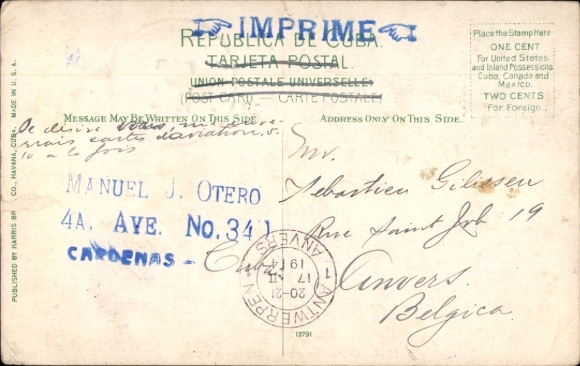 IMPRIME
REPÚBLICA DE CUBA.
TARJETA POSTAL.
UNION POSTALE UNIVERSELLE
(POST CARD — CARTE POSTALE)
MESSAGE MAY BE WRITTEN ON THIS SIDE
ADDRESS ONLY ON THIS SIDE.
Place the Stamp Here
ONE CENT
for United States
and Island Possessions
Cuba, Canada and
Mexico.
TWO CENTS
For Foreign.
PUBLISHED BY HARRIS BR CO., HAVANA, CUBA. MADE IN U. S. A.
cartes d'aviation 5.
10 a la fois
MANUEL J. OTERO
4A. AVE. No. 341
CARDENAS -
Cuba
Mr.
Sebastien Gilissen
Rue Saint Job 19
Anvers.
Belgica.
1 ANTWERPEN
20-21
17 II
1914
ANVERS
13791